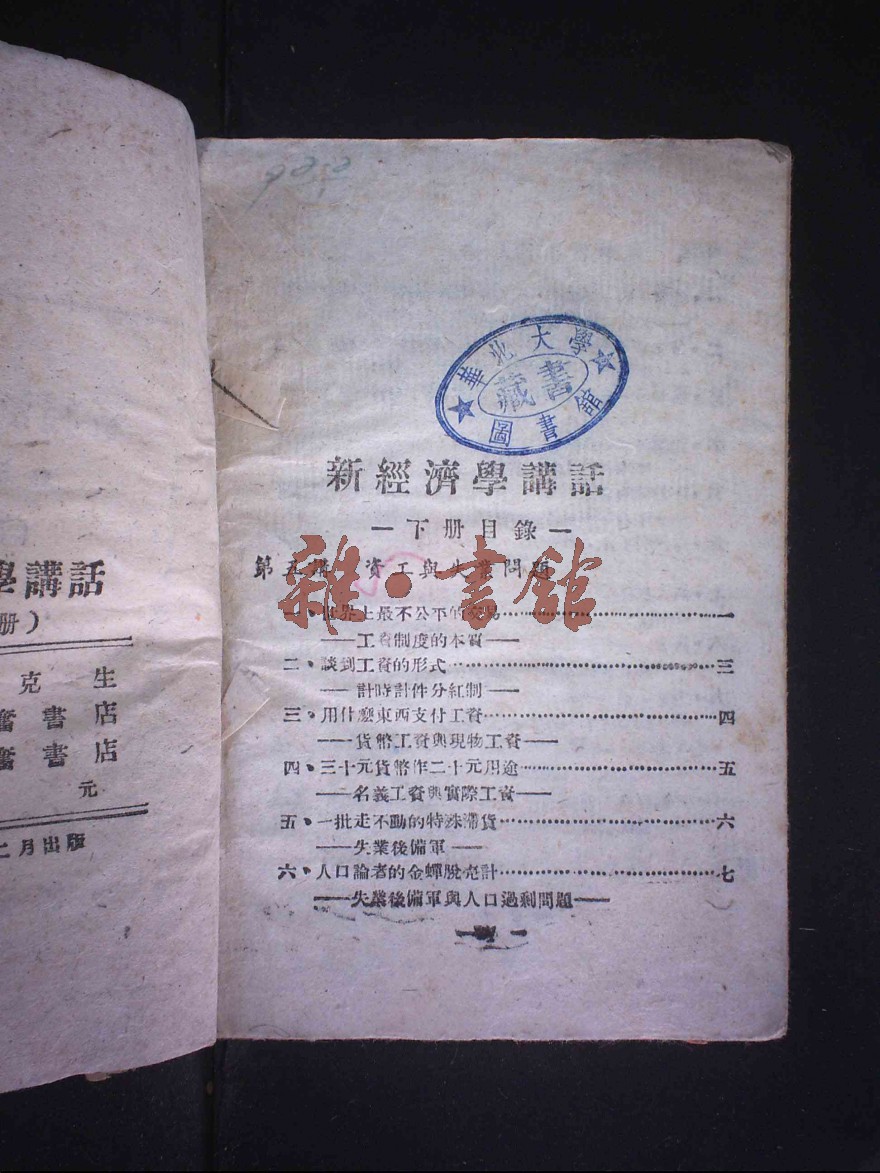 學講話
册）
克生
書店
書店
元
二月出版
華北大學
藏書
圖書館
新經濟學講話
—下册目錄—
第五講 資工與失業問題
雜·書館
一、世界上最不公平的交易……一
——工資制度的本質——
二、談到工資的形式……三
——計時計件分紅制——
三、用什麽東西支付工資……四
——貨幣工資與現物工資——
四、三十元貨幣作二十元用途……五
——名義工資與實際工資——
五、一批走不動的特殊滯貨……六
——失業後備軍——
六、人口論者的金蟬脫壳計……七
——失業後備軍與人口過剩問題——